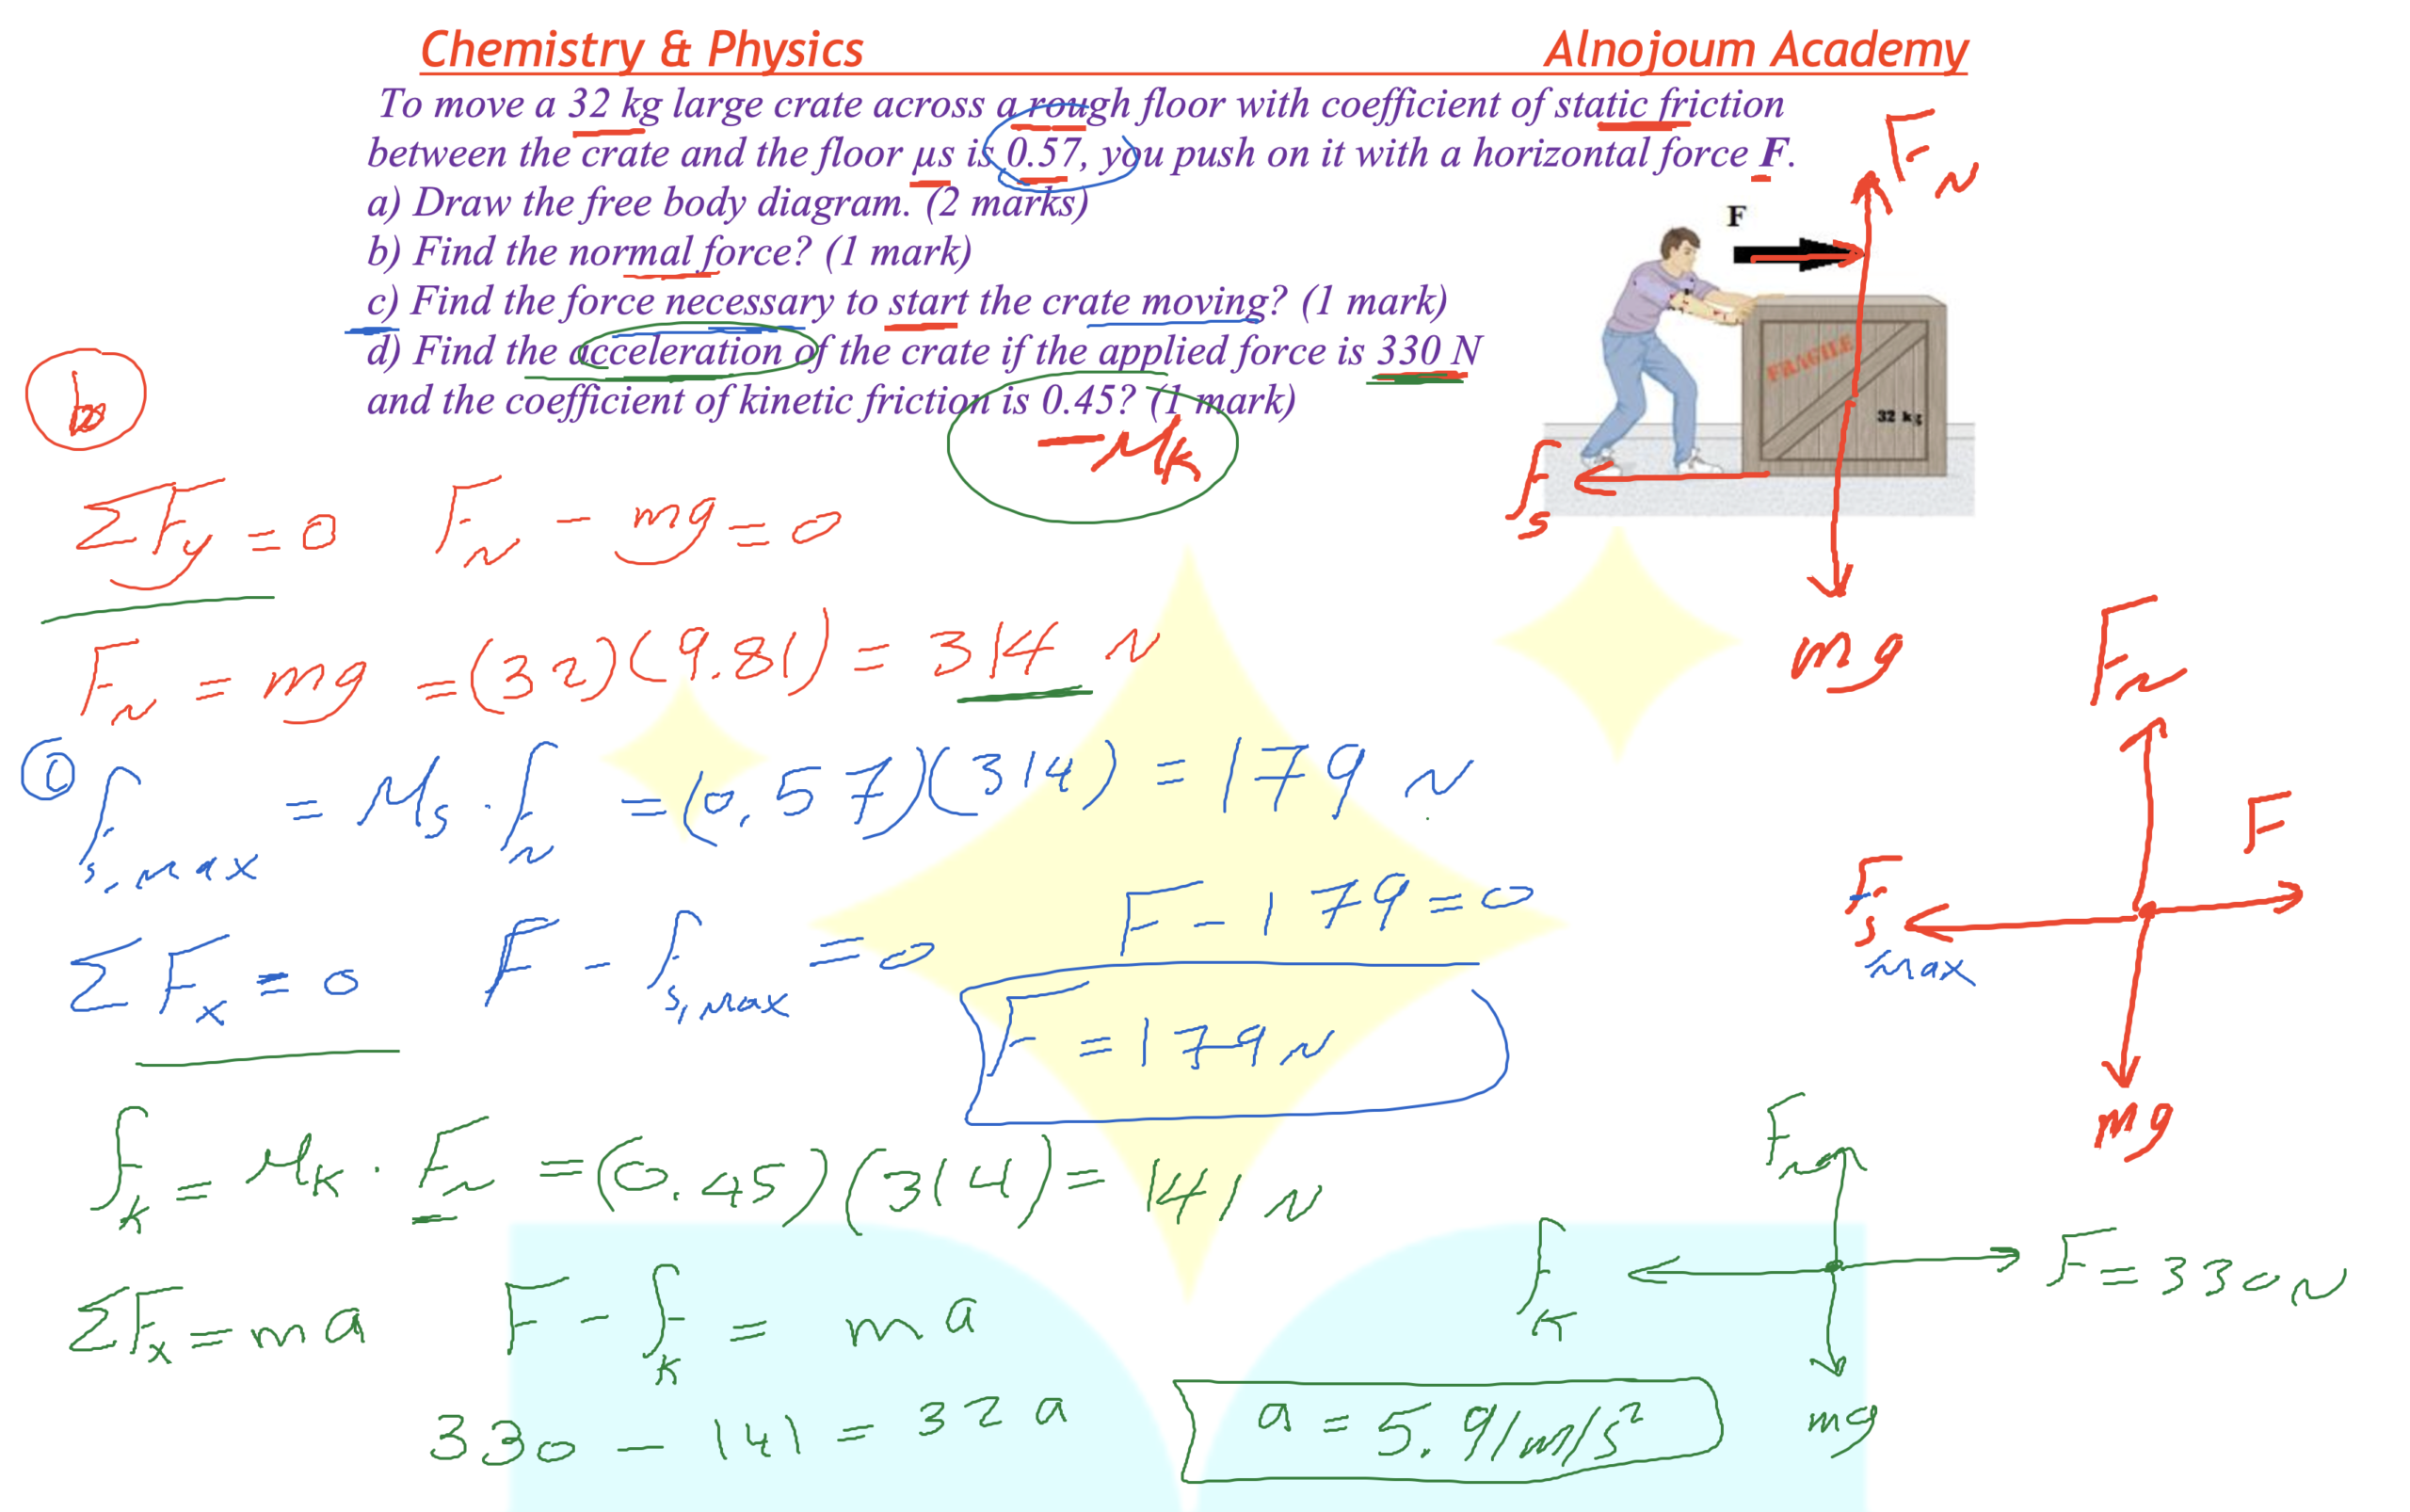 Chemistry & Physics Alnojoum Academy
To move a 32 kg large crate across a rough floor with coefficient of static friction
between the crate and the floor µs is 0.57, you push on it with a horizontal force F.
a) Draw the free body diagram. (2 marks)
b) Find the normal force? (1 mark)
c) Find the force necessary to start the crate moving? (1 mark)
d) Find the acceleration of the crate if the applied force is 330 N
and the coefficient of kinetic friction is 0.45? (1 mark)
F
FRAGILE
32 kg
F_N
f_s
mg
- μ_k
b
ΣF_y = 0 F_N - mg = 0
F_N = mg = (32)(9.81) = 314 N
c
f_s,max = μ_s · f_N = (0.57)(314) = 179 N
ΣF_x = 0 F - f_s,max = 0 F - 179 = 0
F = 179 N
F_N
F
f_s max
mg
f_k = μ_k · F_N = (0.45)(314) = 141 N
ΣF_x = ma F - f_k = ma
330 - 141 = 32 a a = 5.91 m/s²
F_N
f_k
F = 330 N
mg